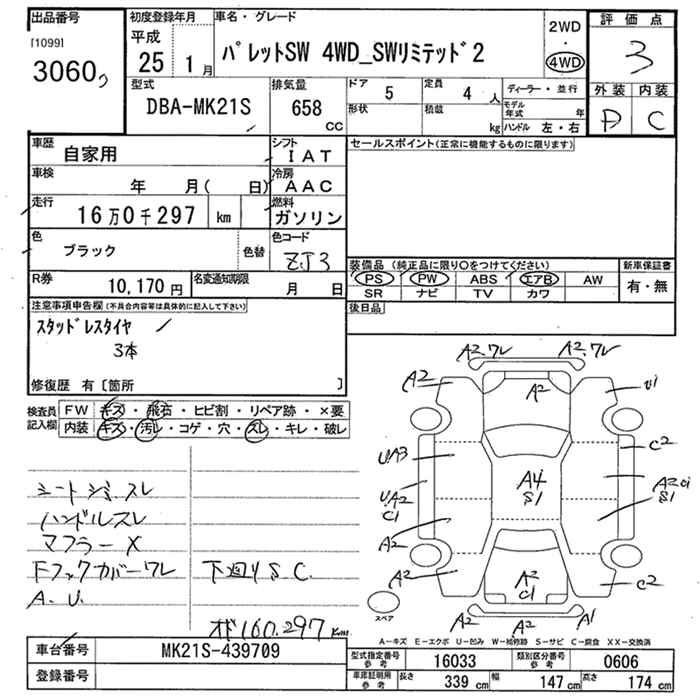 出品番号
[1099]
3060
初度登録年月
平成
25 1月
車名・グレード
パレットSW 4WD_SWリミテッド2
2WD
・
4WD
評価点
3
外装 内装
D C
型式
DBA-MK21S
排気量
658
CC
ドア 5
定員 4 人
形状
積載 kg
ディーラー・並行
モデル年式 年
ハンドル 左・右
車歴
自家用
シフト
IAT
車検
年 月( 日)
冷房
AAC
走行
16万0千297 km
燃料
ガソリン
色
ブラック
色替
色コード
ZJ3
R券
10,170円
名変通知期限
月 日
セールスポイント(正常に機能するものに限ります)
装備品 (純正品に限り○をつけてください)
新車保証書
PS PW ABS エアB AW
SR ナビ TV カワ
有・無
後日品
注意事項申告欄(不具合内容等は具体的に記入して下さい)
スタッドレスタイヤ
3本
修復歴 有〔箇所 〕
検査員
記入欄
FW キズ・飛石・ヒビ割・リペア跡・×要
内装 キズ・汚レ・コゲ・穴・スレ・キレ・破レ
シートシミ、スレ
ハンドルスレ
マフラーX
Fフックカバーワレ 下廻りS.C.
A.U.
オド160.297km
A2.ワレ A2.ワレ
A2 A2 U1
C2
UA3
A4
S1
UA2
C1
S1
A2
A2 A2
C1
C2
A2 A2 A1
スペア
A-キズ E-エクボ U-凹み W-補修跡 S-サビ C-腐食 XX-交換済
車台番号 MK21S-439709
登録番号
型式指定番号
参考
16033
類別区分番号
参考
0606
車庫証明用
参考
長さ 339 cm
幅 147 cm
高さ 174 cm